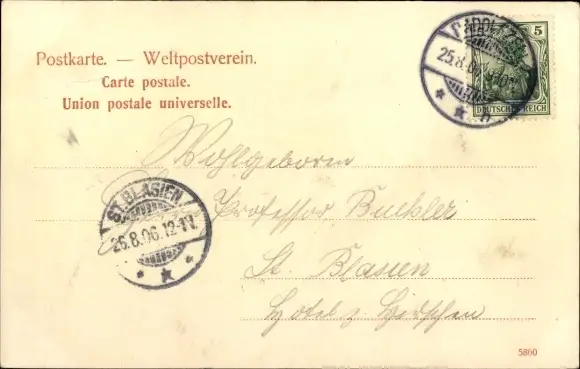 Postkarte. — Weltpostverein.
Carte postale.
Union postale universelle.
5
DEUTSCHES REICH
25.8.0
Wohlgeboren
Professor Buchler
St. Blasien
Hotel z. Hirschen
ST. BLASIEN
25.8.06.12-1N.
5860